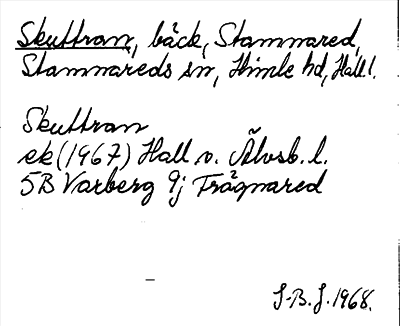 Skuttran, bäck, Stamnared,
Stamnareds sn, Himle hd, Hall l.
Skuttran
ek (1967) Hall o. Älvsb. l.
5B Varberg 9j Frågnared
S-B. J. 1968.